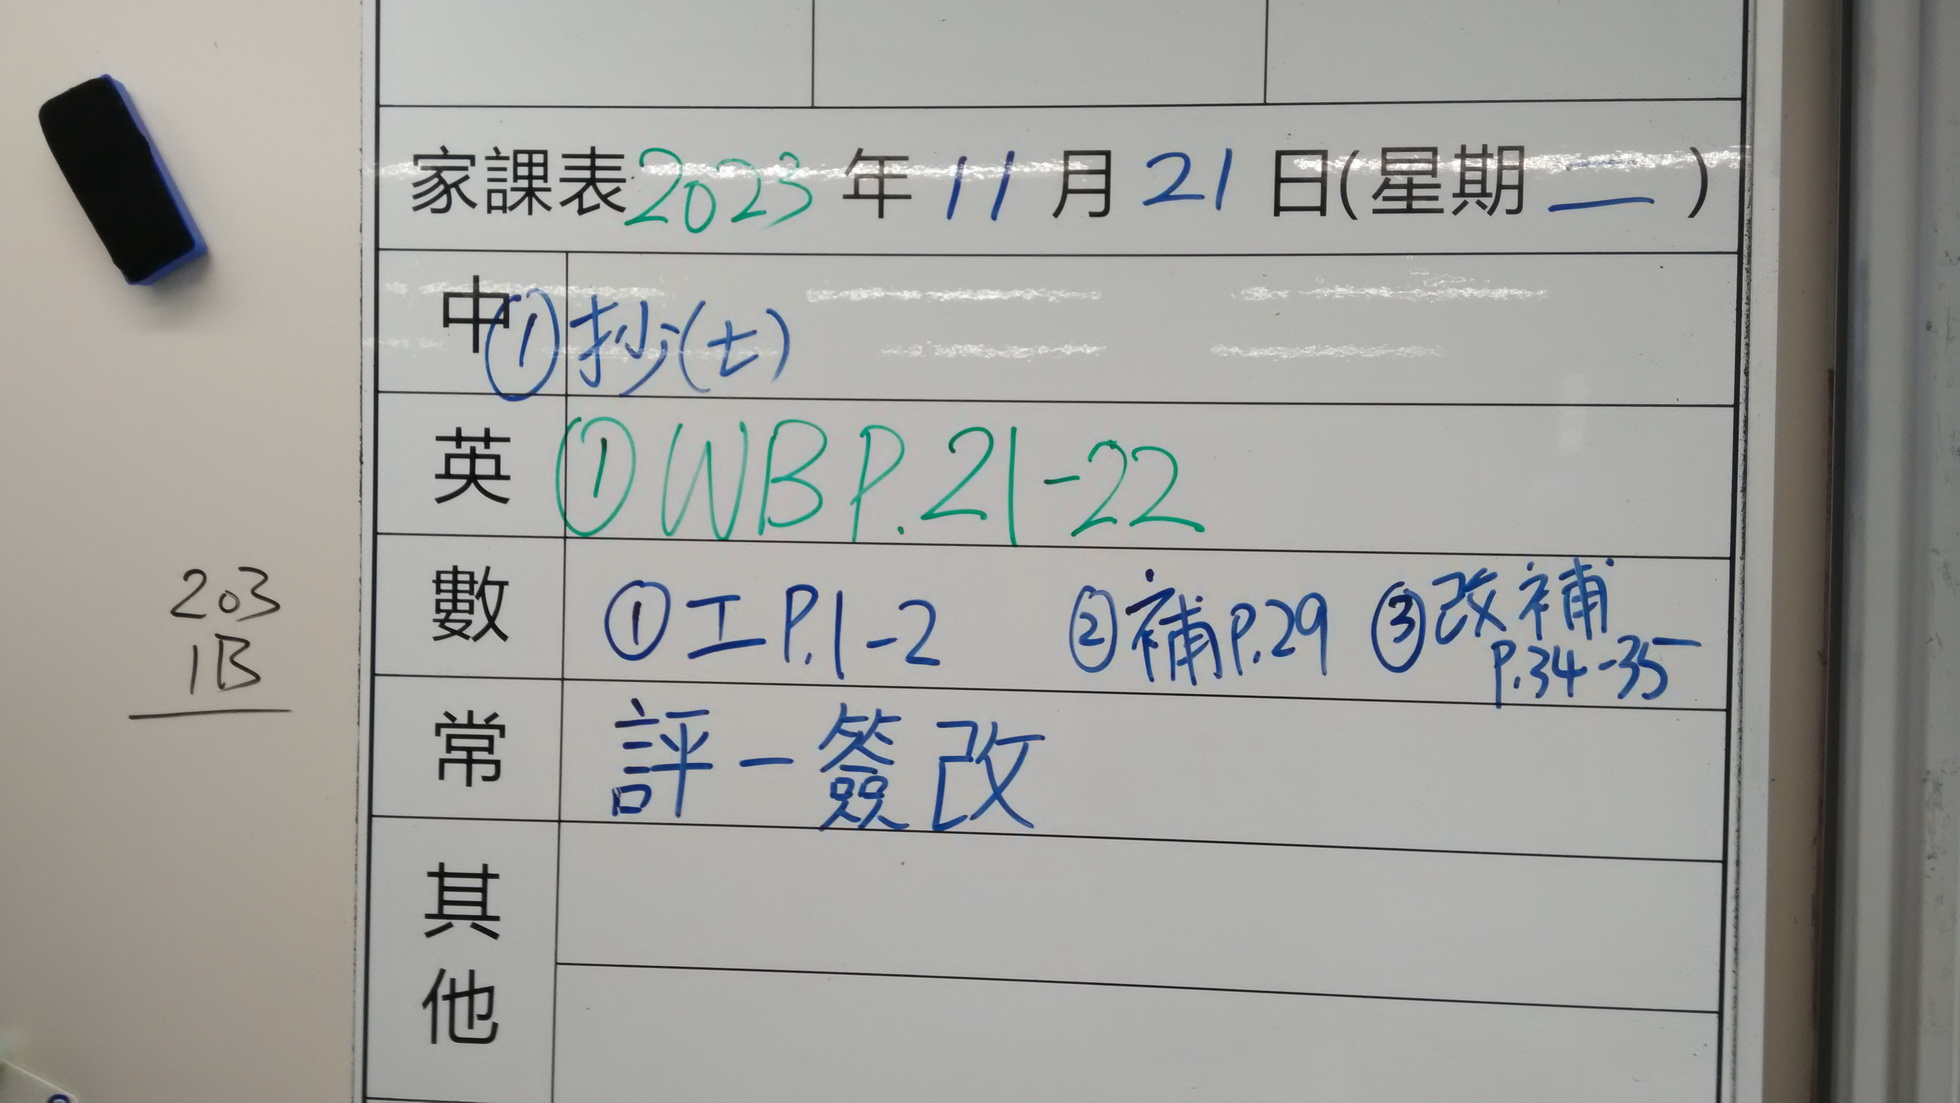 家課表2023年11月21日(星期二)
中①抄(七)
英①WB P.21-22
數 ①工P.1-2 ②補P.29 ③改補P.34-35
常 評一簽改
其他
203
1B